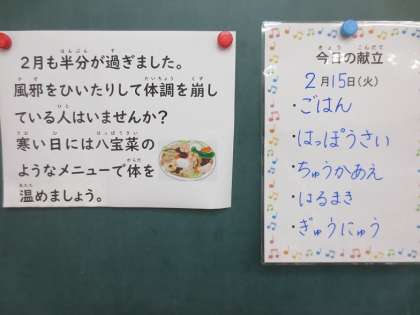 2月も半分が過ぎました。
風邪をひいたりして体調を崩し
ている人はいませんか？
寒い日には八宝菜の
ようなメニューで体を
温めましょう。
今日の献立
2月15日(火)
・ごはん
・はっぽうさい
・ちゅうかあえ
・はるまき
・ぎゅうにゅう